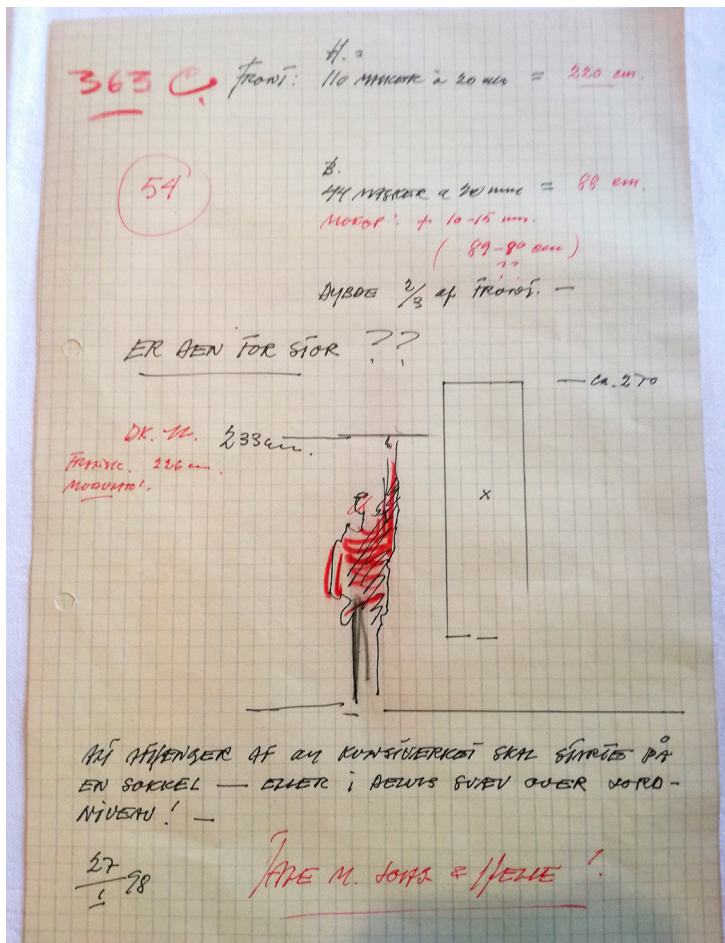 363 C
FRONT:
H. =
110 MASKER à 20 mm = 220 cm.
54
B.
44 MASKER a 20 mm = 88 cm.
+ 10-15 mm.
(89-80 cm)
??
DYBDE 2/3 af FRONT. —
ER DEN FOR STOR ??
— ca. 270
DK. 233 cm.
226 cm
MODULOR!
x
AFHÆNGER AF OM KUNSTVERKET SKAL STARTE PÅ
EN SOKKEL — ELLER i DELVIS SVÆV OVER JORD-
NIVEAU! —
27/1 98
TALE M. & HELLE !